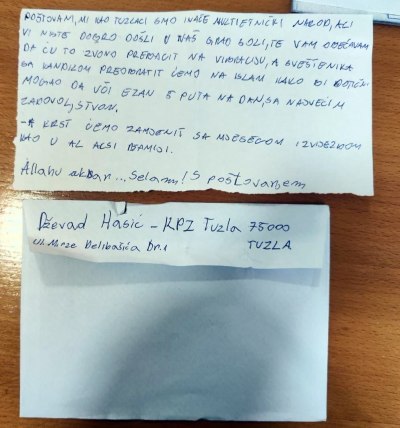 POŠTOVANI, MI KAO TUZLACI SMO INAČE MULTIETNIČKI NAROD, ALI
VI NISTE DOBRO DOŠLI U NAŠ GRAD SOLI, TE VAM OBEĆAVAM
DA ĆU TO ZVONO PREBACIT NA VIBRACIJU, A SVEŠTENIKA
SA KANDILOM PREOBRATIT ĆEMO NA ISLAM KAKO BI
MOGAO DA UČI EZAN 5 PUTA NA DAN, SA NAJVEĆIM
ZADOVOLJSTVOM.
- A KRST ĆEMO ZAMJENIT SA MJESECOM I ZVIJEZDOM
KAO U AL AKSI DŽAMIJI.
Allahu akbar... Selam! S poštovanjem
Dževad Hasić - KPZ Tuzla 75000
Ul. Mirze Delibašića Br. 1 TUZLA